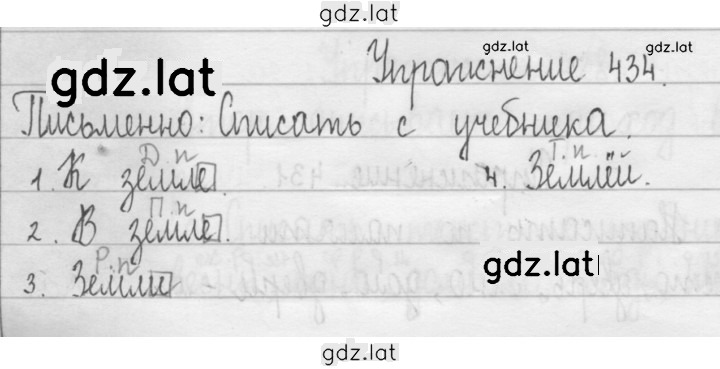 gdz.lat
gdz.lat
gdz.lat
gdz.lat
Упражнение 434.
Письменно: Списать с учебника
Д.п
1. К земле.
Т.п
4. Землёй.
П.п
2. В земле.
Р.п
3. Земли
gdz.lat
gdz.lat